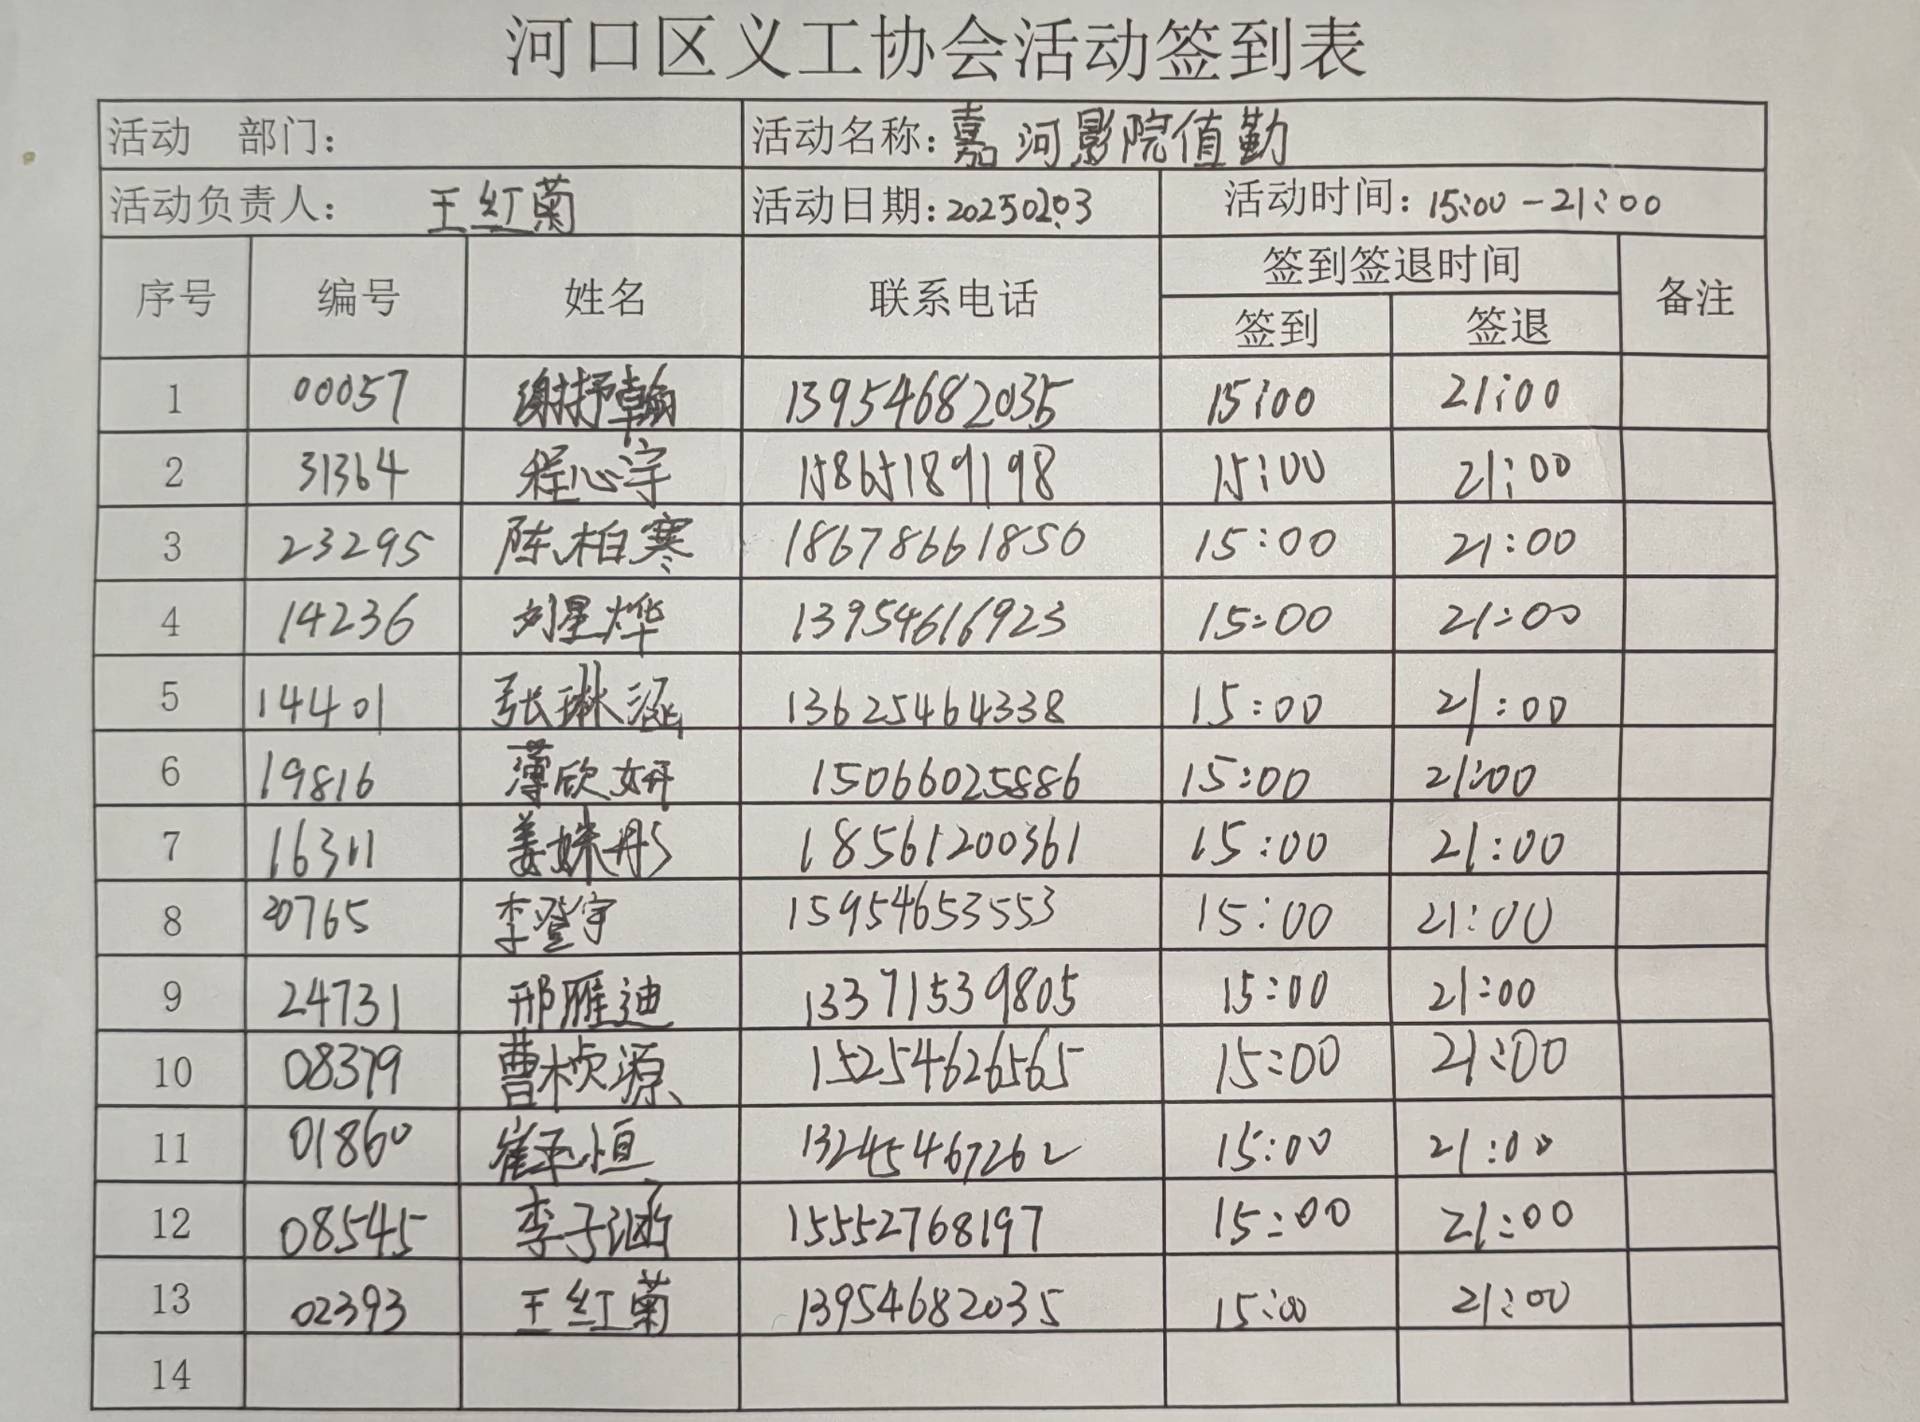 河口区义工协会活动签到表
活动 部门: 活动名称: 嘉河影院值勤
活动负责人: 王红菊 活动日期: 20250203 活动时间: 15:00-21:00
序号 编号 姓名 联系电话 签到签退时间 备注
签到 签退
1 00057 谢抒翰 13954682035 15:00 21:00
2 31364 程心宇 15865189198 15:00 21:00
3 23295 陈柏寒 18678661850 15:00 21:00
4 14236 刘星烨 13954616923 15:00 21:00
5 14401 张琳涵 13625464338 15:00 21:00
6 19816 薄欣妍 15066025886 15:00 21:00
7 16311 姜姝彤 18561200361 15:00 21:00
8 20765 李登宇 15954653553 15:00 21:00
9 24731 邢雁迪 13371539805 15:00 21:00
10 08379 曹桢源 15254626565 15:00 21:00
11 01860 崔恒 13245467262 15:00 21:00
12 08545 李子涵 15552768197 15:00 21:00
13 02393 王红菊 13954682035 15:00 21:00
14